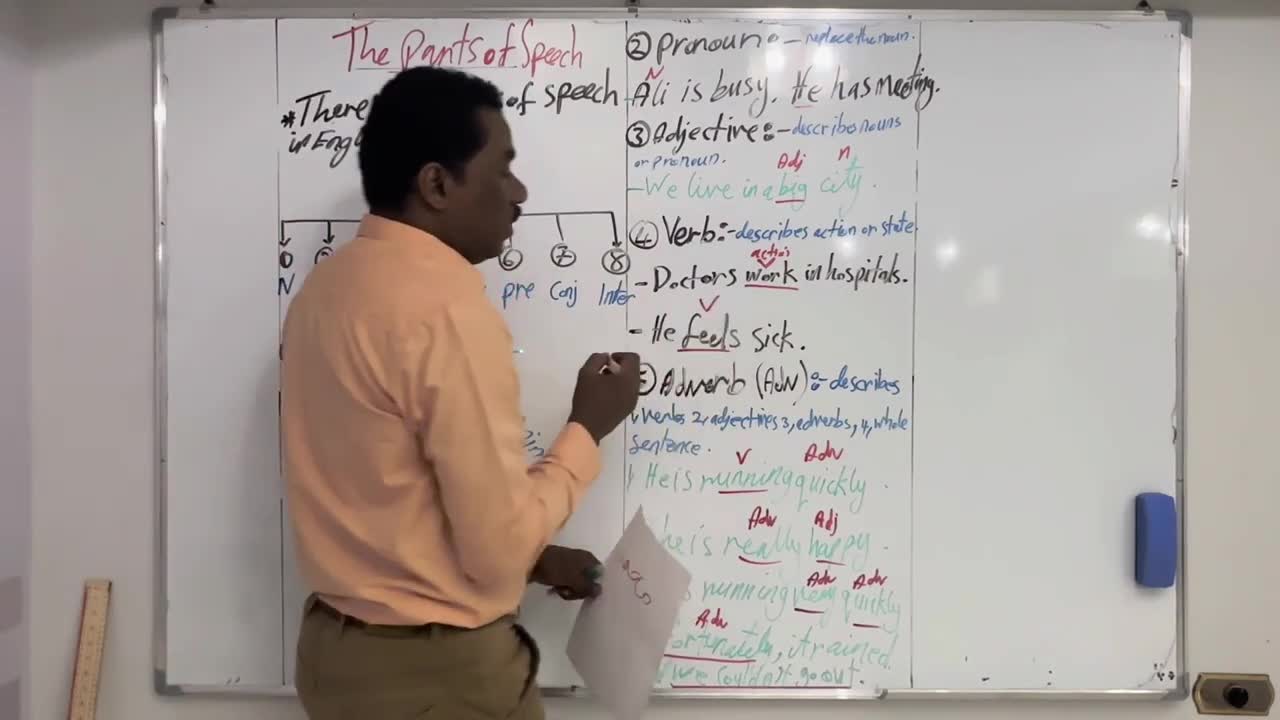 The Parts of Speech
*There of speech
in Eng
8
6 7 8
N pre Conj Inter
② Pronoun:- replace the noun.
N
Ali is busy. He has meeting.
③ Adjective:- describe nouns
or pronoun. Adj n
-We live in a big city.
④ Verb:- describes action or state.
action
- Doctors work in hospitals.
V
- He feels sick.
Adverb (Adv):- describes
verbs 2, adjectives 3, adverbs, 4, whole
sentence.
V Adv
He is running quickly.
Adv Adj
he is really happy.
Adv Adv
running very quickly
Adv
ortunately, it rained.
we couldn't go out.